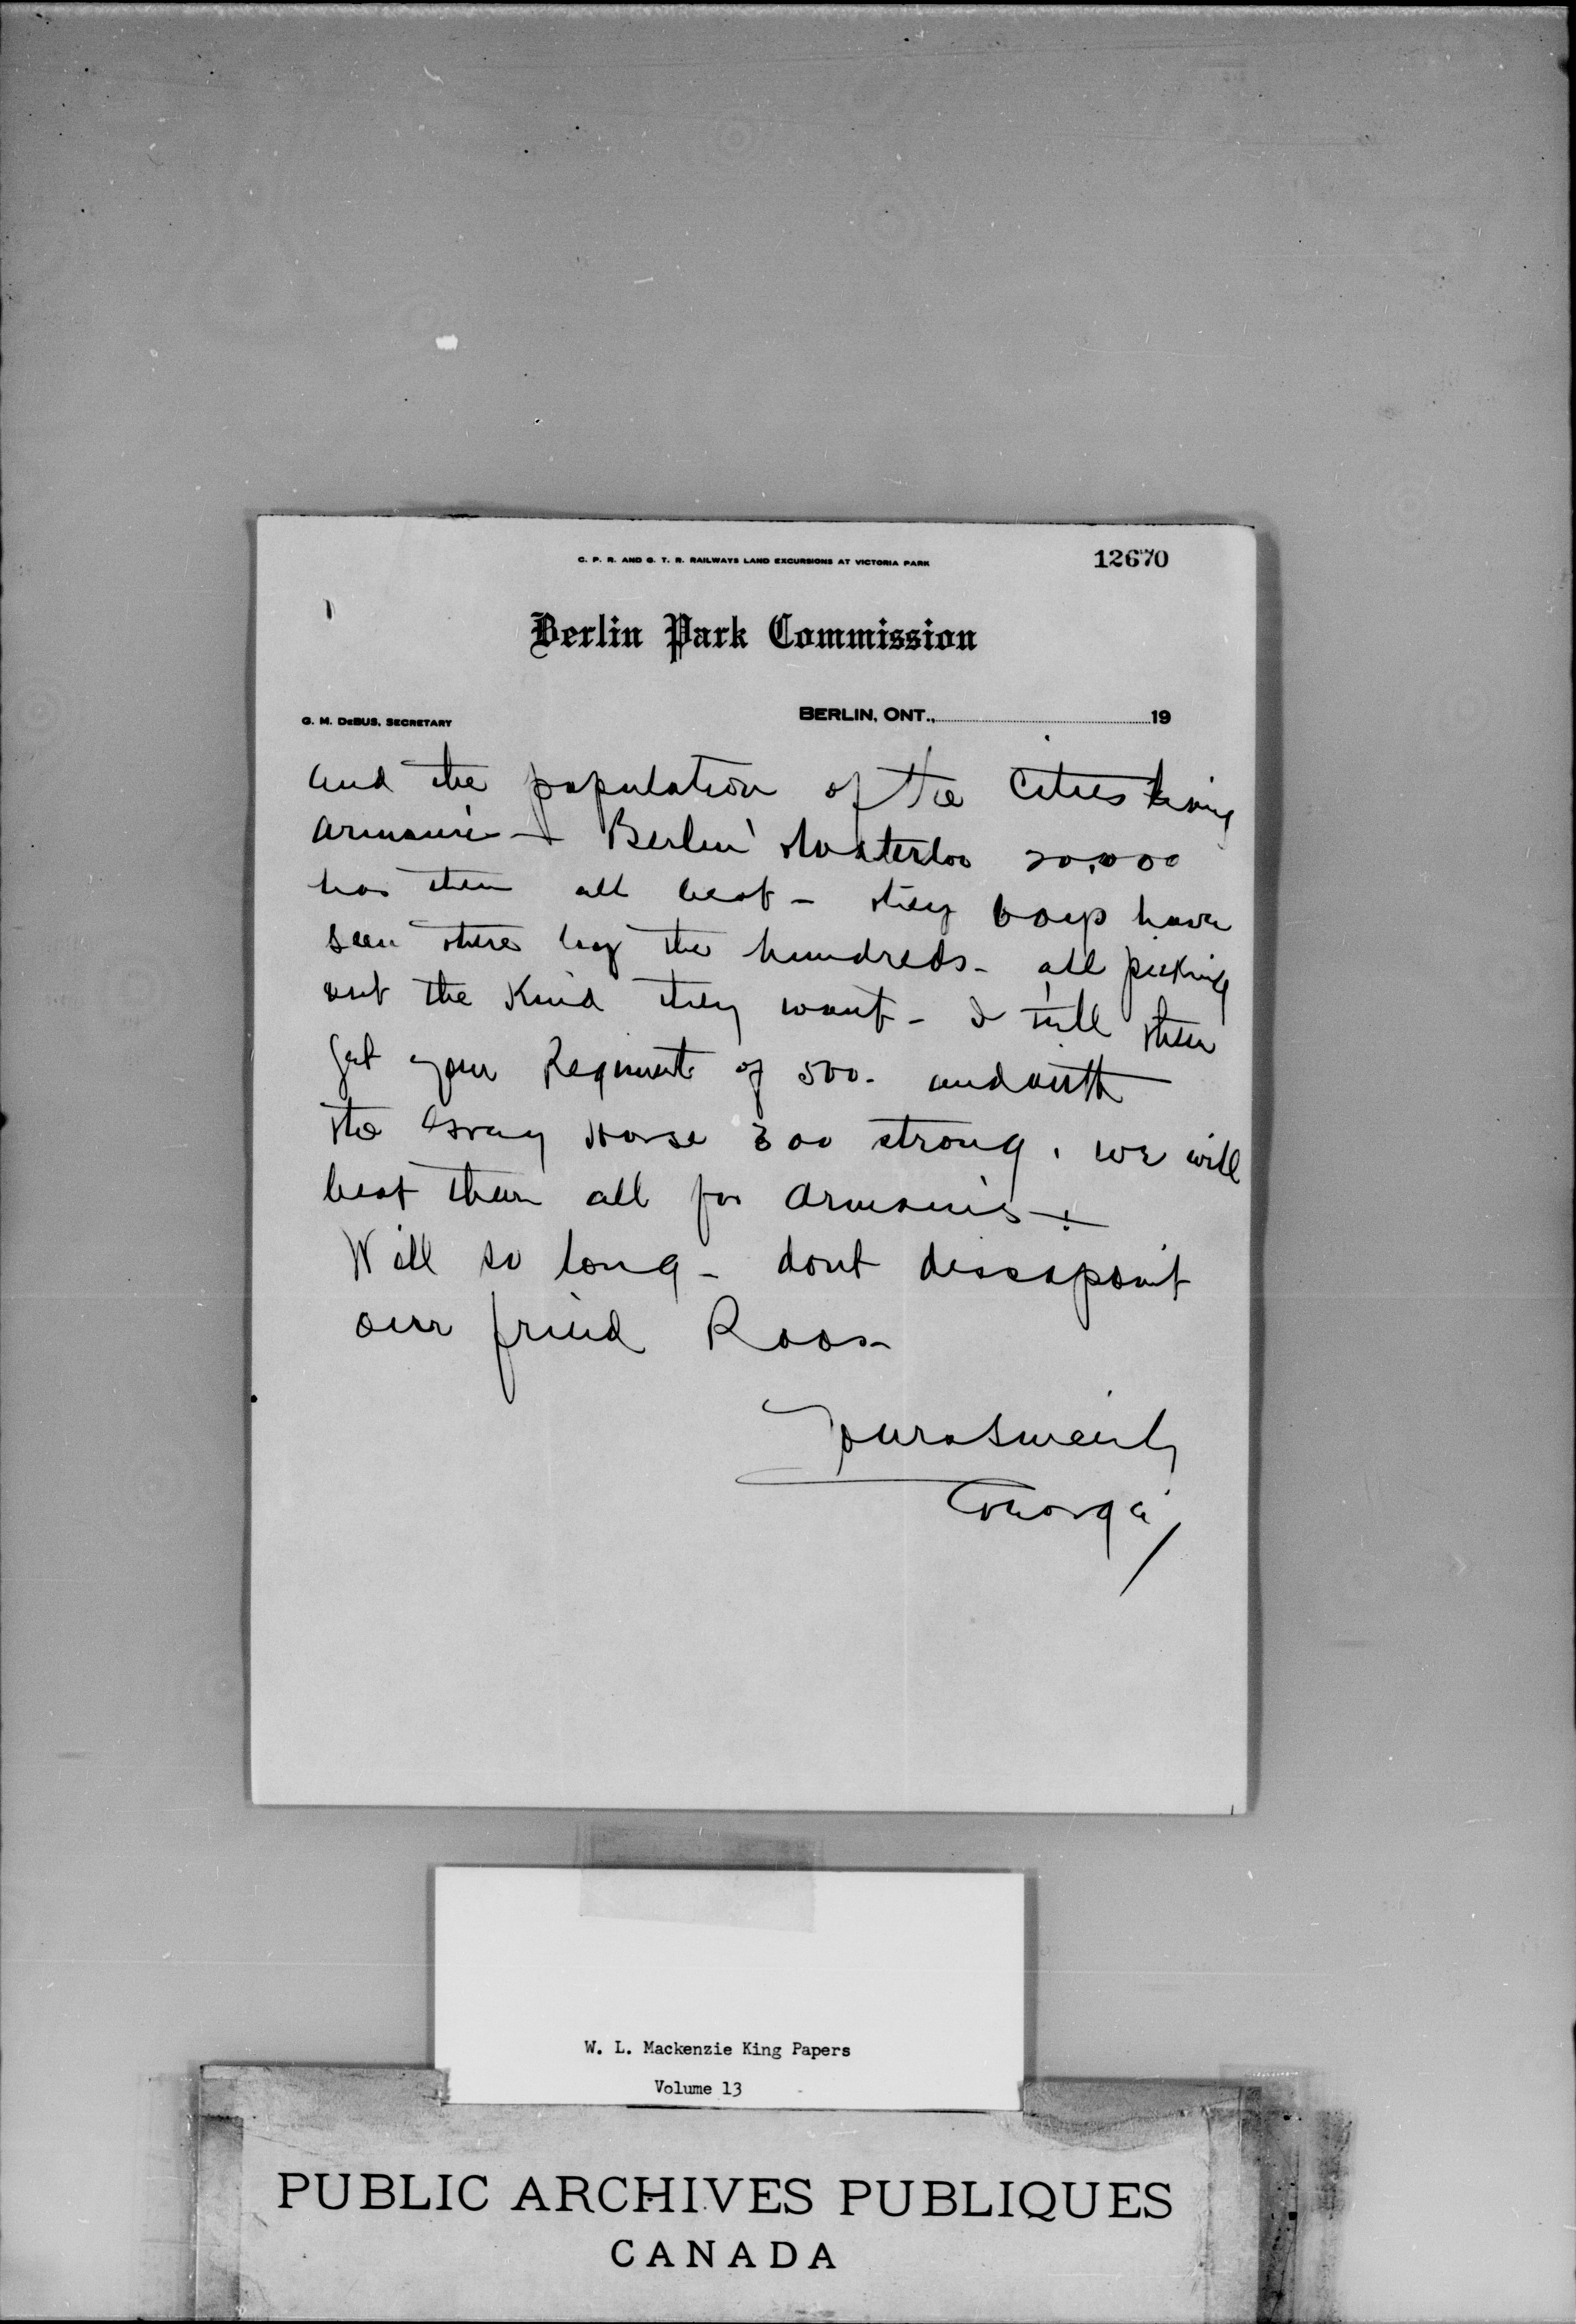 C. P. R. AND G. T. R. RAILWAYS LAND EXCURSIONS AT VICTORIA PARK
12670
Berlin Park Commission
G. M. DeBUS, SECRETARY
BERLIN, ONT., 19
and the population of the Cities having
armouries Berlin Waterloo 20,000
has them all beat - they boys have
seen there by the hundreds - all picking
out the Kind they want - I tell them
get your Regiment of 500 - and with
the Gray Horse 300 strong, we will
beat them all for armouries
Will so long - dont dissapoint
our friend Roos -
Yours Sincerely
George
W. L. Mackenzie King Papers
Volume 13
PUBLIC ARCHIVES PUBLIQUES
CANADA